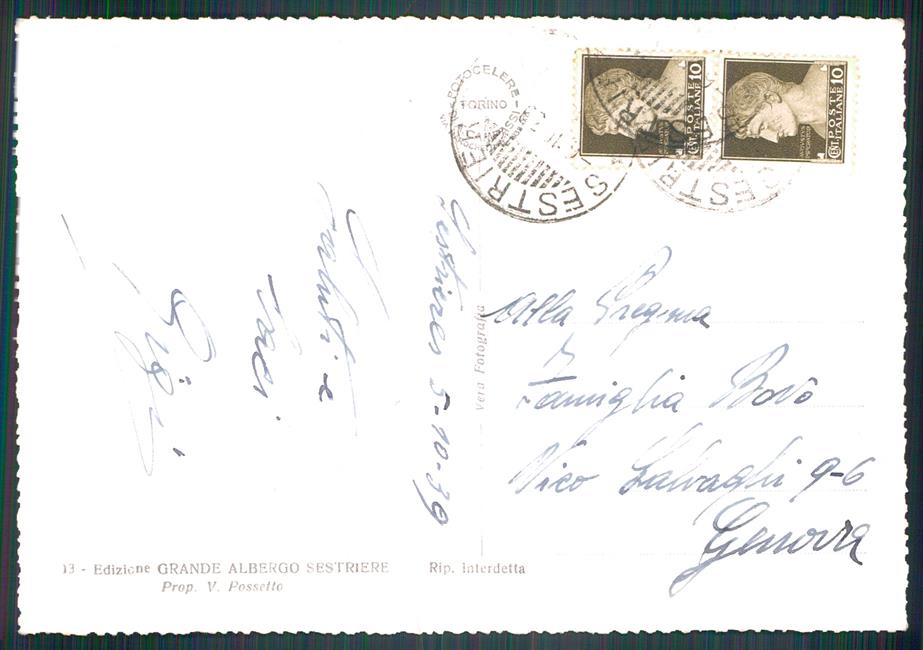 Sestrieres 5-10-39
Saluti e
baci
Gigi
Alla Preg.ma
Famiglia Bovò
Vico Salvaghi 9-6
Genova
Vera Fotografia
FOTOCELERE
TORINO
SESTRIERE
SESTRIERE
POSTE
ITALIANE
CENT. 10
POSTE
ITALIANE
CENT. 10
13 - Edizione GRANDE ALBERGO SESTRIERE
Prop. V. Possetto
Rip. Interdetta